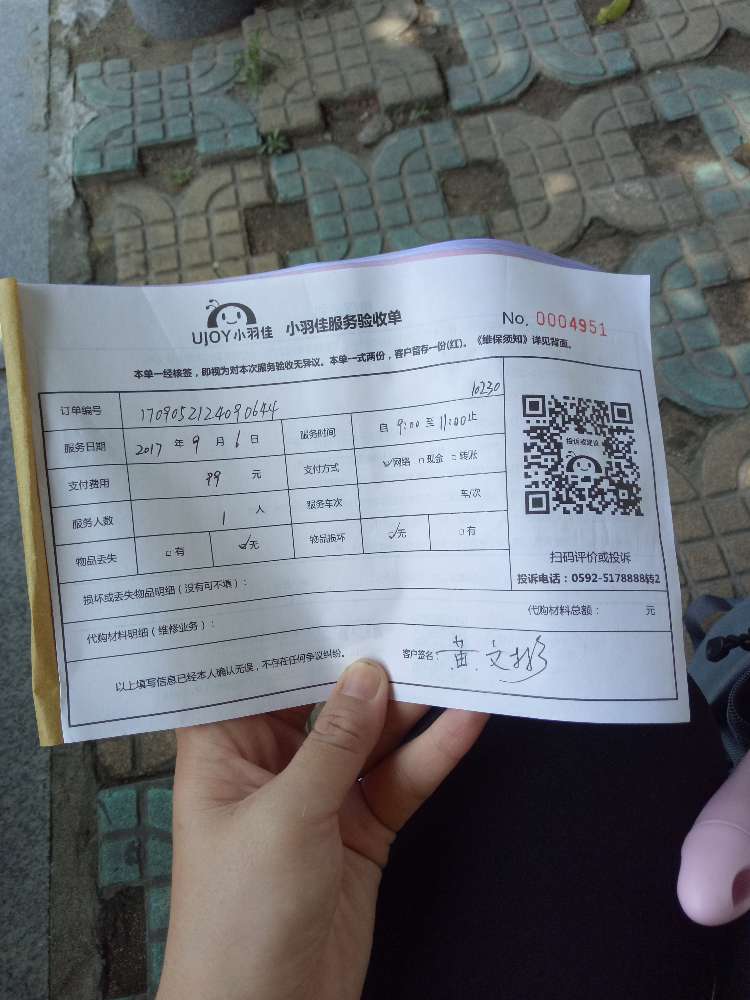 UJOY小羽佳 小羽佳服务验收单 No. 0004951
本单一经核签，即视为对本次服务验收无异议。本单一式两份，客户留存一份(红)。《维保须知》详见背面。
订单编号 1709052124090644 10230
服务日期 2017 年 9 月 6 日 服务时间 自 9:00 至 11:00 止
支付费用 99 元 支付方式 ☑网络 □现金 □转账
服务人数 1 人 服务车次 车/次
物品丢失 □有 ☑无 物品损坏 ☑无 □有
损坏或丢失物品明细（没有可不填）：
代购材料明细（维修业务）： 代购材料总额： 元
以上填写信息已经本人确认无误，不存在任何争议纠纷。 客户签名：黄文彬
投诉或建议
扫码评价或投诉
投诉电话：0592-5178888转2